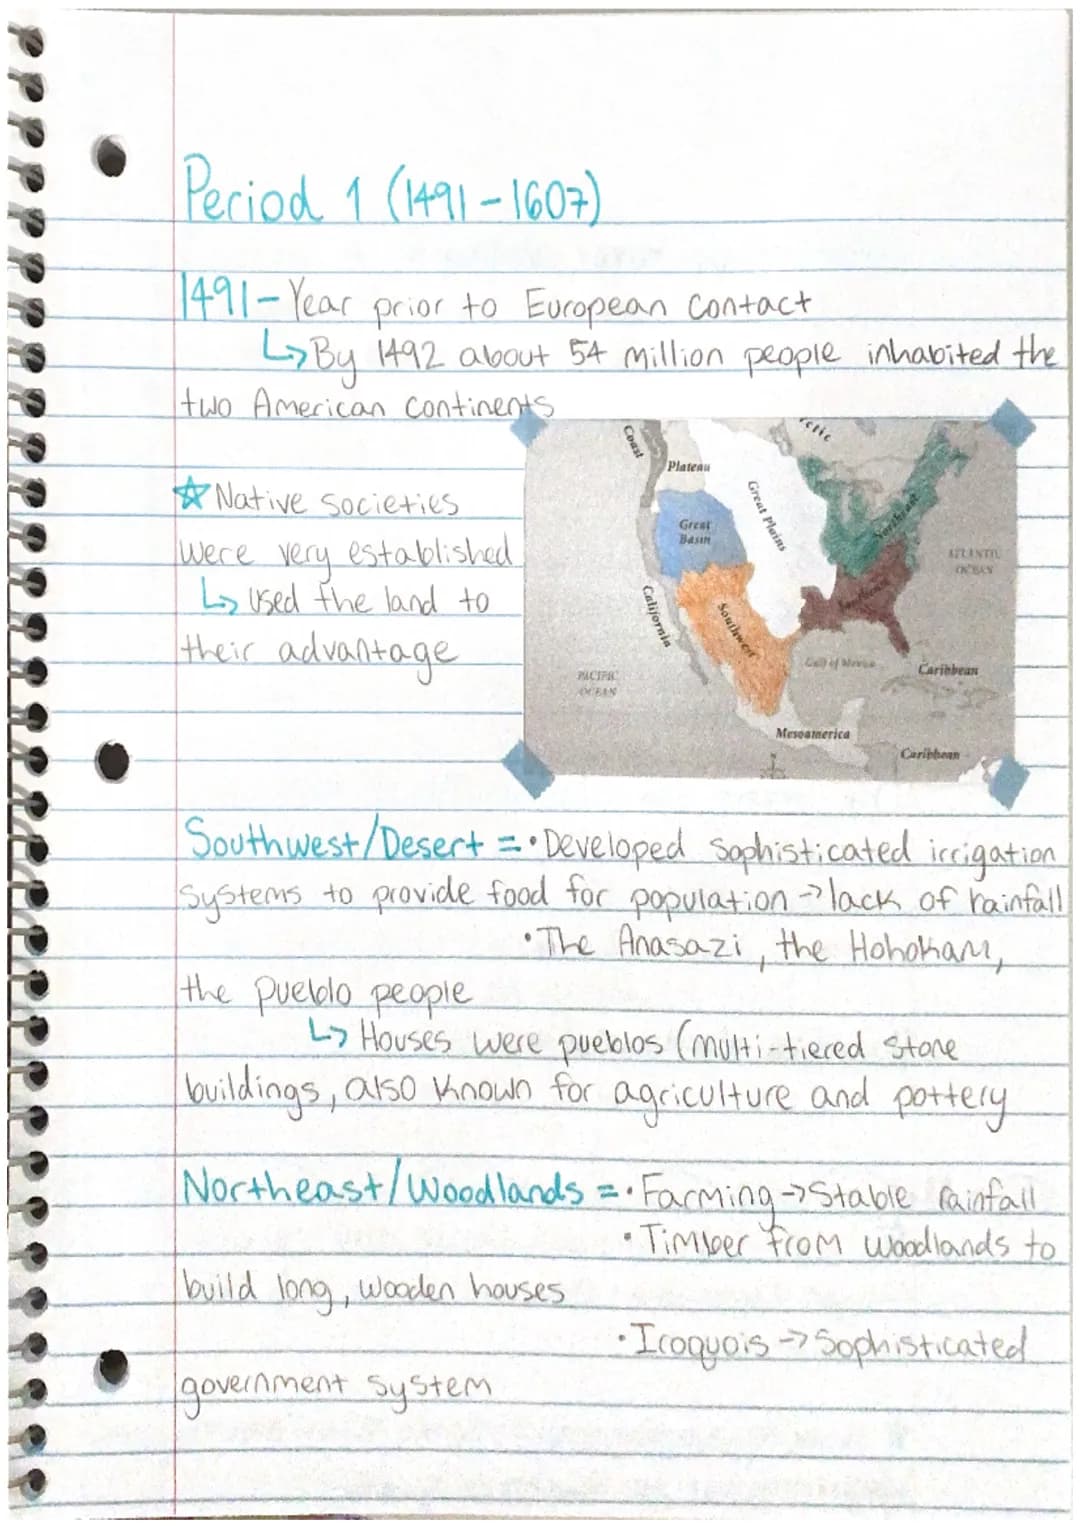 Period 1 (1491-1607)
1491- Year prior to European contact
↳ By 1492 about 54 million people inhabited the
two American continents
☆ Native societies
were very established
↳ Used the land to
their advantage
Coast
Plateau
Great Plains
Great
Basin
Northeast
ATLANTIC
OCEAN
California
Southwest
Southeast
Gulf of Mexico
Caribbean
PACIFIC
OCEAN
Mesoamerica
Caribbean
Southwest/Desert = • Developed sophisticated irrigation
systems to provide food for population → lack of rainfall
• The Anasazi, the Hohokam,
the Pueblo people
↳ Houses were pueblos (multi-tiered stone
buildings, also known for agriculture and pottery
Northeast/Woodlands = • Farming → Stable rainfall
• Timber from woodlands to
build long, wooden houses
• Iroquois → Sophisticated
government system